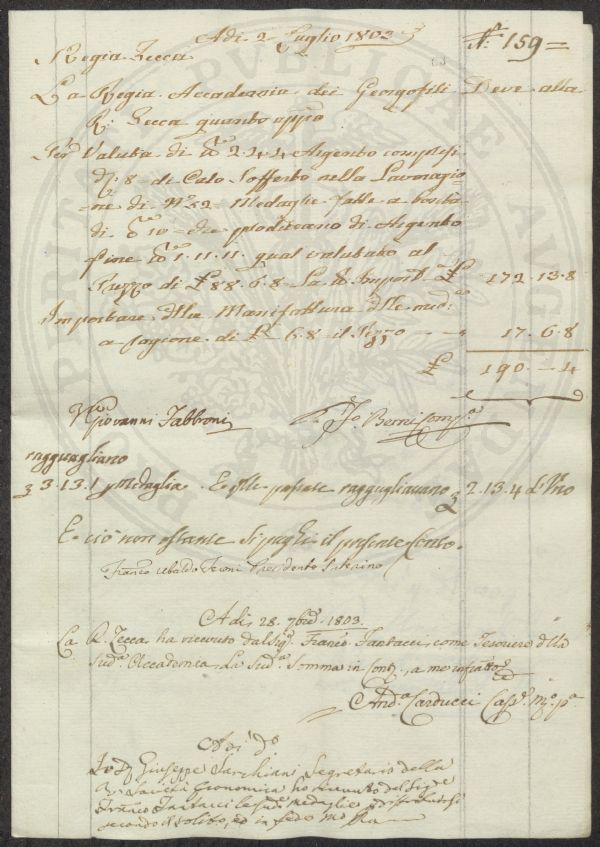 Adi 2 Luglio 1803
Nº: 159 =
Regia Zecca
La Regia Accademia dei Georgofili Deve alla
R. Zecca quanto app.o
Per Valuta di 2.4.4 Argento compresi
8 di Calo Sofferto nella Lavorazio=
=ne di Nº 52 Medaglie fatte a
di 10 di Argento
fine 1.11.11. qual valutato al
Prezzo di £ 88.6.8 La Import £ 172.13.8
Importare della Manifattura delle med:
a ragione di £ 6.8 il Pezzo 17.6.8
£ 190.-4
Vº Giovanni Fabbroni
Berni Comp.
ragguagliano
3.13.1 medaglia. E le passate ragguagliavano 2.13.4 l'Uno
E ciò non ostante si paghi il presente Conto.
Franco Ubaldo Feroni Presidente Interino
Adi 28. 7bre 1803.
La R. Zecca ha ricevuto dal Sig. Franco Fantacci, come Tesoriere della
Sud.a Accademia, La Sud.a Somma in Cont.
And.a Carducci Cass.
Adi do
Io Giuseppe Sarchiani Segretario della
R. Società Economica ho ricevuto dal Sig.re
Franco Fantacci le sud.e medaglie
secondo il solito, ed in fede Mo Pa
PRO PUBLICAE